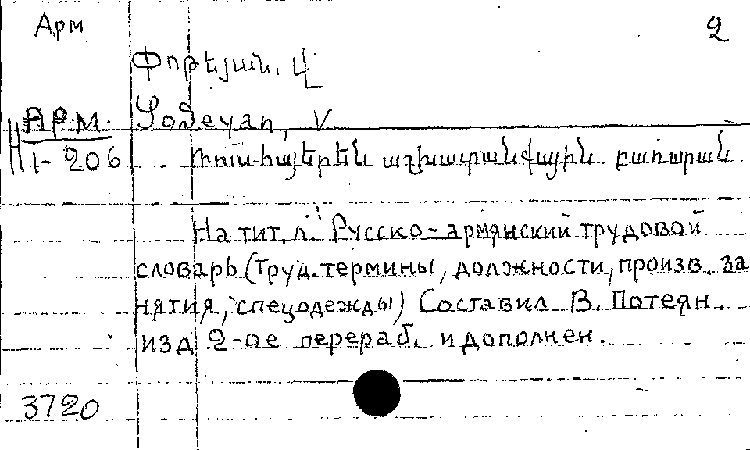 Арм 2
Փոթեյան. Վ
Арм. Yoteyan, V
1-206 Ռուս-հայերեն աշխատանքային բառարան.
На тит. л. Русско-армянский трудовой
словарь (Труд. термины, должности, произв. за
нятия, спецодежды) Составил В. Потеян.
изд 2-ое перераб. и дополнен.
3720